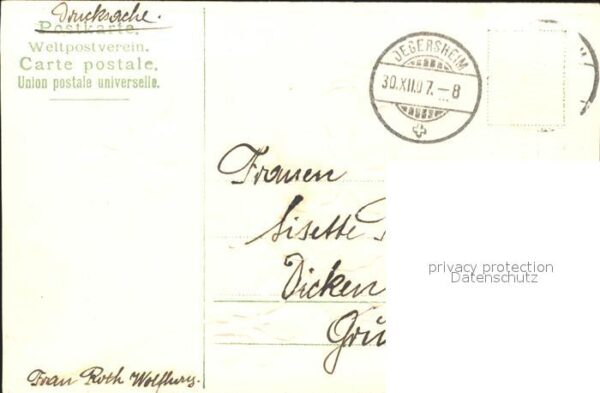 Drucksache.
Postkarte.
Weltpostverein.
Carte postale.
Union postale universelle.
DEGERSHEIM
30.XII.07.–8
Frauen
Lisette
Dicken
Grü
privacy protection
Datenschutz
Frau Roth Wolfhag.